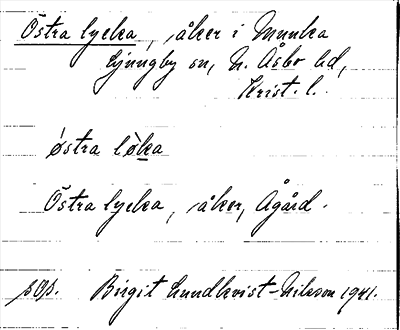 Östra lycka, åker i Munka
Ljungby sn, N. Åsbo hd,
Krist. l.
östra lòka
Östra lycka, åker, Ågård.
sop. Birgit Lundkvist-Nilsson 1941.